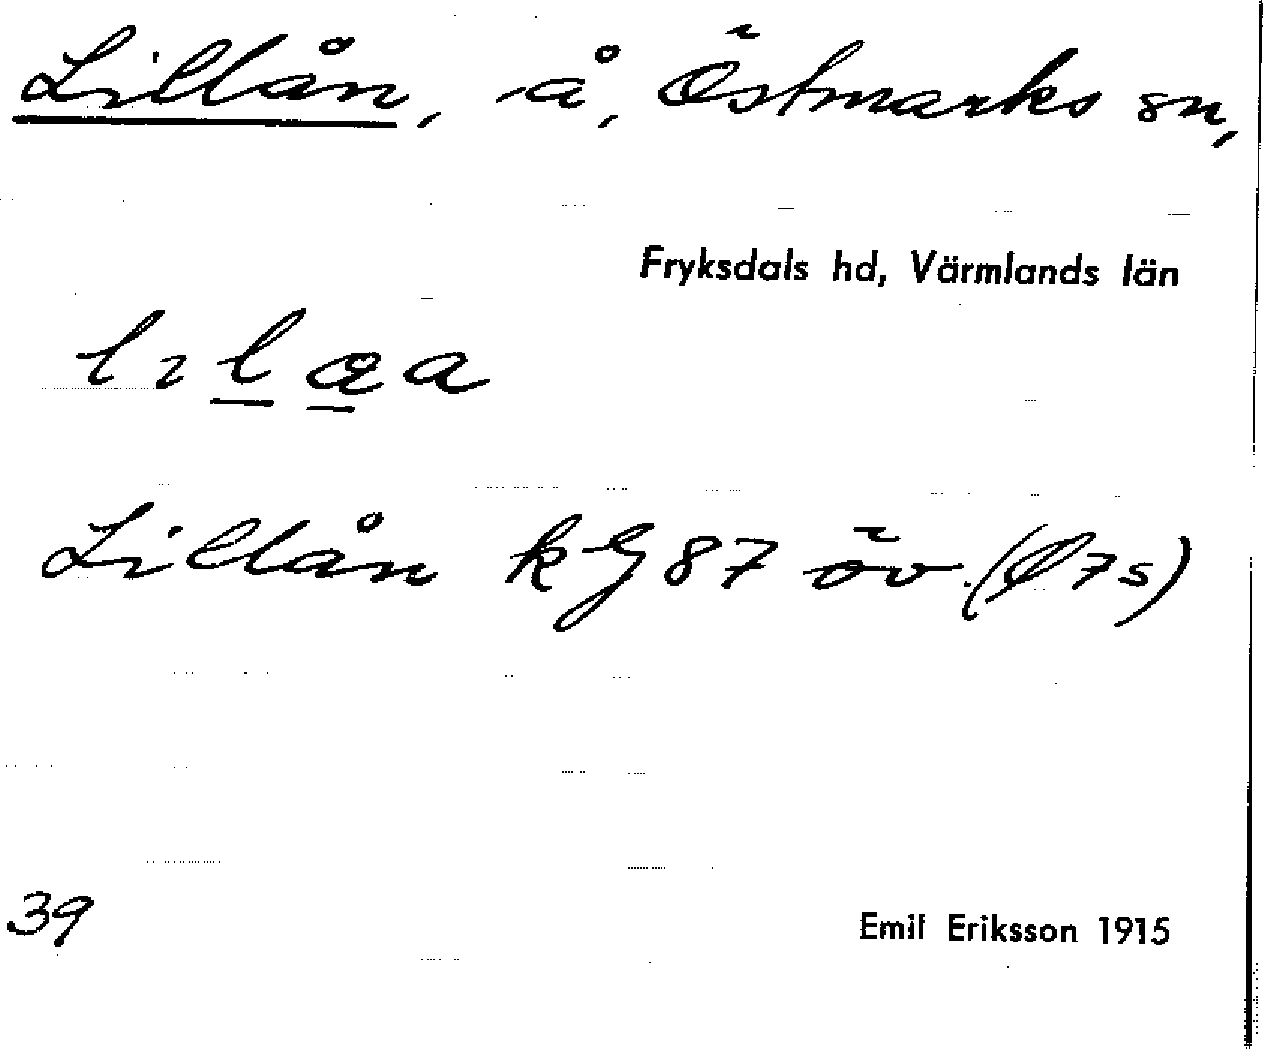 Lillån, å, Östmarks sn,
Fryksdals hd, Värmlands län
Lillån kG 87 öv.
39
Emil Eriksson 1915